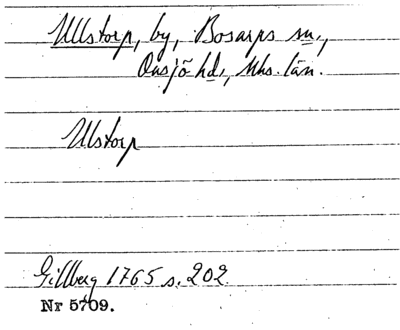 Ullstorp, by, Bosarps sn.,
Onsjö hd., Mhs. län.
Ulstorp
Gillberg 1765 s. 202.
Nr 5709.